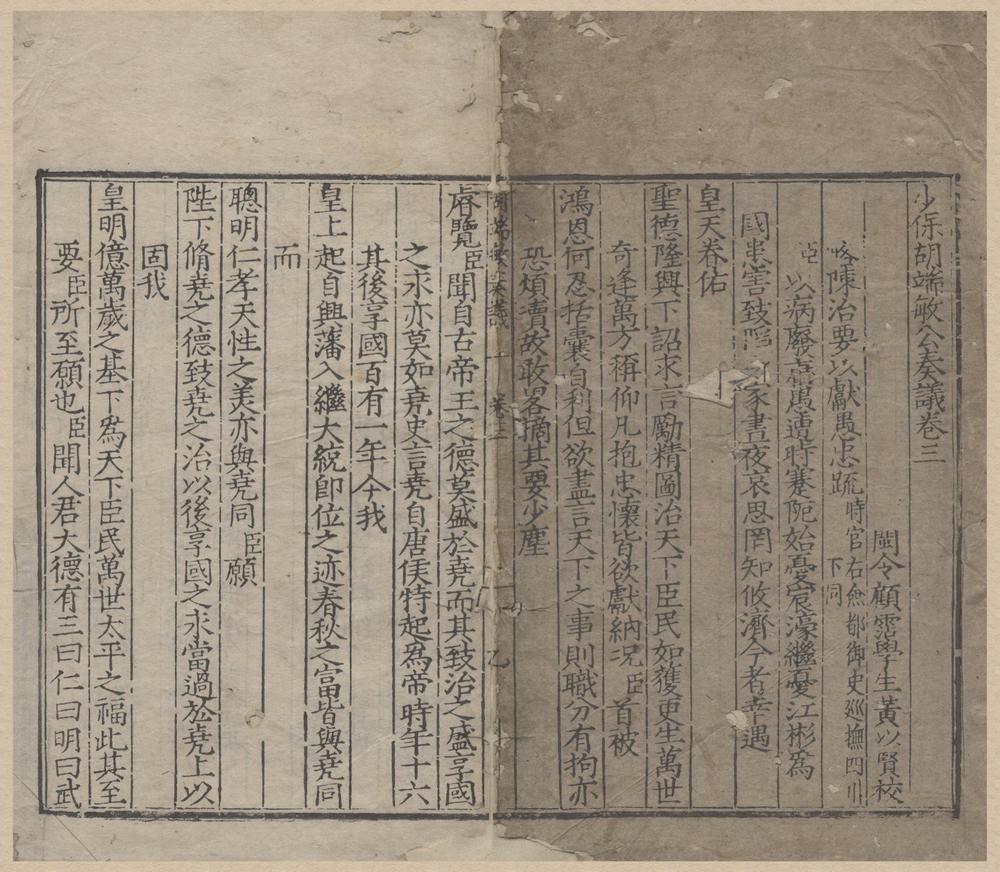 少保胡端敏公奏議卷三
閩令顧霑學生黃以賢校
陳治要以獻愚忠疏時官右僉都御史巡撫四川下同
臣以病廢衰愚遭時蹇阨始憂宸濠繼憂江彬為
國患害致家晝夜哀思罔知攸濟今者幸遇
皇天眷佑
聖德隆興下詔求言勵精圖治天下臣民如獲更生萬世
奇逢萬方稱仰凡抱忠懷皆欲獻納况臣首被
鴻恩何忍括囊自利但欲盡言天下之事則職分有拘亦
恐煩瀆故敢畧摘其要少塵
胡端敏奏議 卷三 乙
睿覽臣聞自古帝王之德莫盛於堯而其致治之盛享國
之永亦莫如堯史言堯自唐侯特起為帝時年十六
其後享國百有一年今我
皇上起自興藩入繼大統即位之迹春秋之富皆與堯同
而
聰明仁孝天性之美亦與堯同臣願
陛下脩堯之德致堯之治以後享國之永當過於堯上以
固我
皇明億萬歲之基下為天下臣民萬世太平之福此其至
要臣所至願也臣聞人君大德有三曰仁曰明曰武